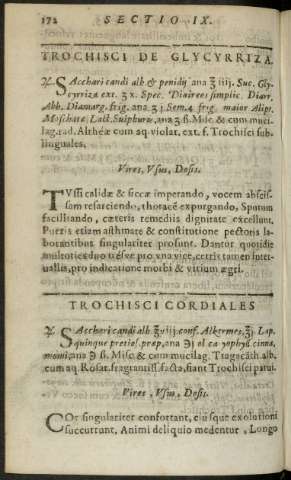 172 SECTIO IX.
TROCHISCI DE GLYCYRRIZA.
℞. SAcchari candi alb & penidij ana ℥ iiij. Suc. Gly-
cyrrizæ ext. ʒ x. Spec. Diaireos simplic. Diarr.
Abb. Diamarg. frig. ana ʒ j Sem. 4 frig. maior Alipt.
Moschatæ, Lact. Sulphuris, ana ʒ ß. Misc. & cum muci-
lag. rad. Altheæ cum aq. violar. ext. f. Trochisci sub-
linguales.
Vires, Vsus, Dosis.
TVssi calidæ & siccæ imperando, vocem abscis-
sam resarciendo, thoracē expurgando, Sputum
facilitando, cæteris remediis dignitate excellunt.
Pueris etiam asthmate & constitutione pectoris la-
borantibus singulariter prosunt. Dantur quotidie
tres pro vna vice, certis tamen inter-
uallis, pro indicatione morbi & virium ægri.
TROCHISCI CORDIALES
℞ SAcchari candi alb. ℥ viij. conf. Alkermes, ℥j. Lap.
quinque pretios. prep. ana ℈j ol. caryophyl. cinna,
momi ana ℈ ß. Misc & cum mucilag. Tragacāth alb.
cum aq. Rosar. fragrantiss. facta, fiant Trochisci parui.
Vires, Vsus, Dosis.
COr singulariter confortant, eiusque exolutioni
succurrunt, Animi deliquio medentur, Longo